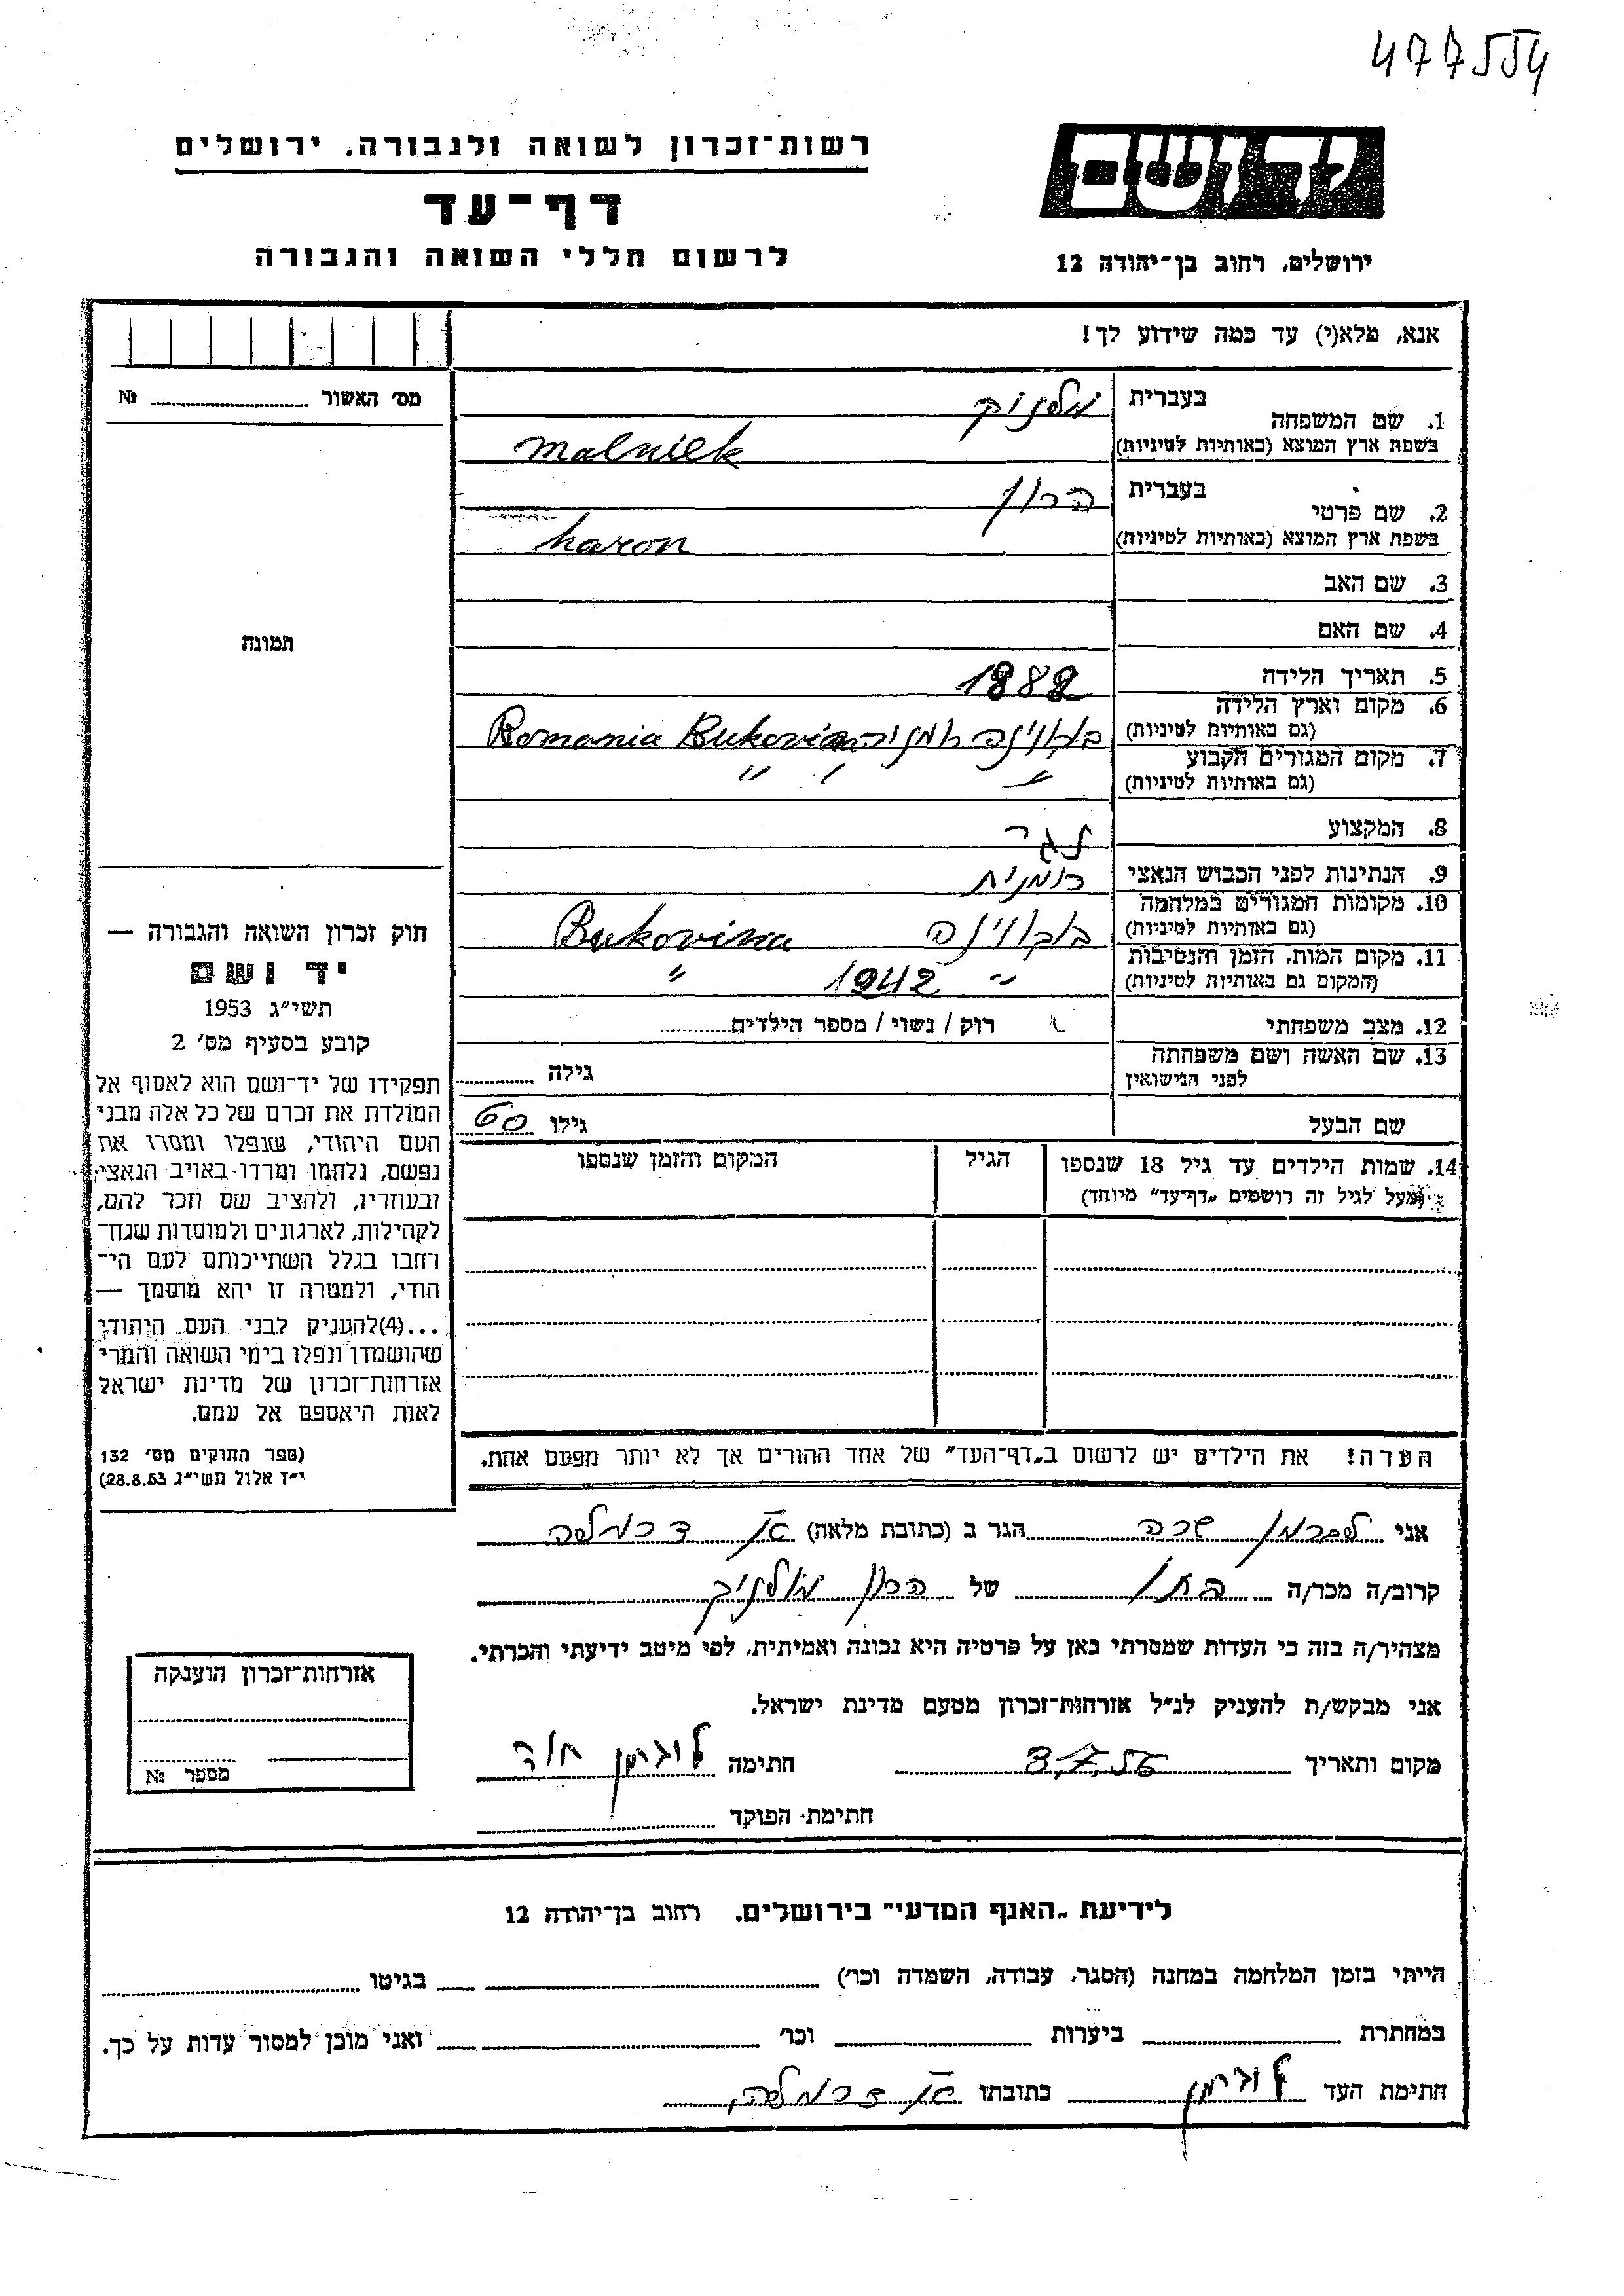 477554
יד ושם
רשות־זכרון לשואה ולגבורה, ירושלים
דף־עד
לרשום חללי השואה והגבורה
ירושלים, רחוב בן־יהודה 12
אנא, מלא(י) עד כמה שידוע לך!
מס' האשור № 
1. שם המשפחה בעברית
בשפת ארץ המוצא (באותיות לטיניות) Malniek
2. שם פרטי בעברית הרון
בשפת ארץ המוצא (באותיות לטיניות) haron
3. שם האב
4. שם האם
תמונה
5. תאריך הלידה 1882
6. מקום וארץ הלידה
(גם באותיות לטיניות) בוקווינה רומניה Romania Bukovina
7. מקום המגורים הקבוע
(גם באותיות לטיניות) " " "
8. המקצוע
9. הנתינות לפני הכבוש הנאצי רומנית
10. מקומות המגורים במלחמה
(גם באותיות לטיניות) בוקווינה Bukovina
11. מקום המות, הזמן והנסיבות
(המקום גם באותיות לטיניות) " 1942 "
12. מצב משפחתי רוק / נשוי / מספר הילדים
13. שם האשה ושם משפחתה
לפני הנישואין גילה
שם הבעל גילו 60
14. שמות הילדים עד גיל 18 שנספו הגיל המקום והזמן שנספו
(מעל לגיל זה רושמים „דף־עד" מיוחד)
חוק זכרון השואה והגבורה —
יד ושם
תשי"ג 1953
קובע בסעיף מס' 2
תפקידו של יד־ושם הוא לאסוף אל
המולדת את זכרם של כל אלה מבני
העם היהודי, שנפלו ומסרו את
נפשם, נלחמו ומרדו באויב הנאצי
ובעוזריו, ולהציב שם וזכר להם,
לקהילות, לארגונים ולמוסדות שנח־
רחבו בגלל השתייכותם לעם הי־
הודי, ולמטרה זו יהא מוסמך —
...(4) להעניק לבני העם היהודי
שהושמדו ונפלו בימי השואה והמרי
אזרחות־זכרון של מדינת ישראל
לאות היאספם אל עמם.
(ספר החוקים מס' 132
י"ז אלול תשי"ג 28.8.53)
הערה! את הילדים יש לרשום ב„דף־העד" של אחד ההורים אך לא יותר מפעם אחת.
אני ליברמן שרה הגר ב (כתובת מלאה)
קרוב/ה מכר/ה בתו של הרון מולניק
מצהיר/ה בזה כי העדות שמסרתי כאן על פרטיה היא נכונה ואמיתית, לפי מיטב ידיעתי והכרתי.
אני מבקש/ת להעניק לנ"ל אזרחות־זכרון מטעם מדינת ישראל.
מקום ותאריך 3.7.56 חתימה
חתימת הפוקד
אזרחות־זכרון הוענקה
מספר №
לידיעת „האגף המדעי" בירושלים, רחוב בן־יהודה 12
הייתי בזמן המלחמה במחנה (הסגר, עבודה, השמדה וכו') בגיטו
במחתרת ביערות וכו' ואני מוכן למסור עדות על כך.
חתימת העד כתובתו